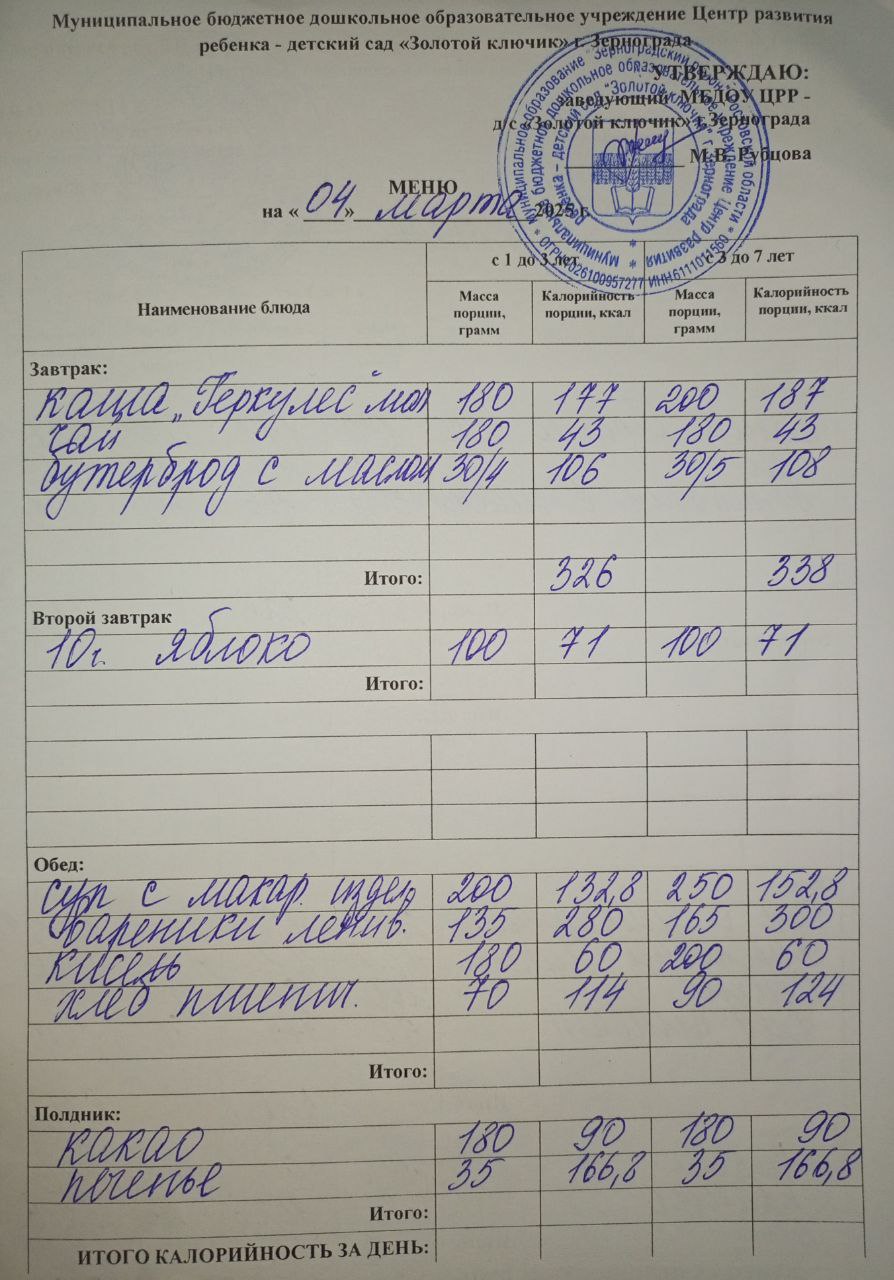 Муниципальное бюджетное дошкольное образовательное учреждение Центр развития
ребенка - детский сад «Золотой ключик» г. Зернограда
УТВЕРЖДАЮ:
заведующий МБДОУ ЦРР -
д/с «Золотой ключик» г.Зернограда
М.В. Рубцова
МЕНЮ
на « 04 » марта 2025 г.
Наименование блюда
с 1 до 3 лет с 3 до 7 лет
Масса порции, грамм Калорийность порции, ккал Масса порции, грамм Калорийность порции, ккал
Завтрак:
каша „Геркулес" мол 180 177 200 187
чай 180 43 180 43
бутерброд с маслом 30/4 106 30/5 108
Итого: 326 338
Второй завтрак
10г. яблоко 100 71 100 71
Итого:
Обед:
суп с макар. издел. 200 132,8 250 152,8
вареники ленив. 135 280 165 300
кисель 180 60 200 60
хлеб пшенич. 70 114 90 124
Итого:
Полдник:
какао 180 90 180 90
печенье 35 166,8 35 166,8
Итого:
ИТОГО КАЛОРИЙНОСТЬ ЗА ДЕНЬ: